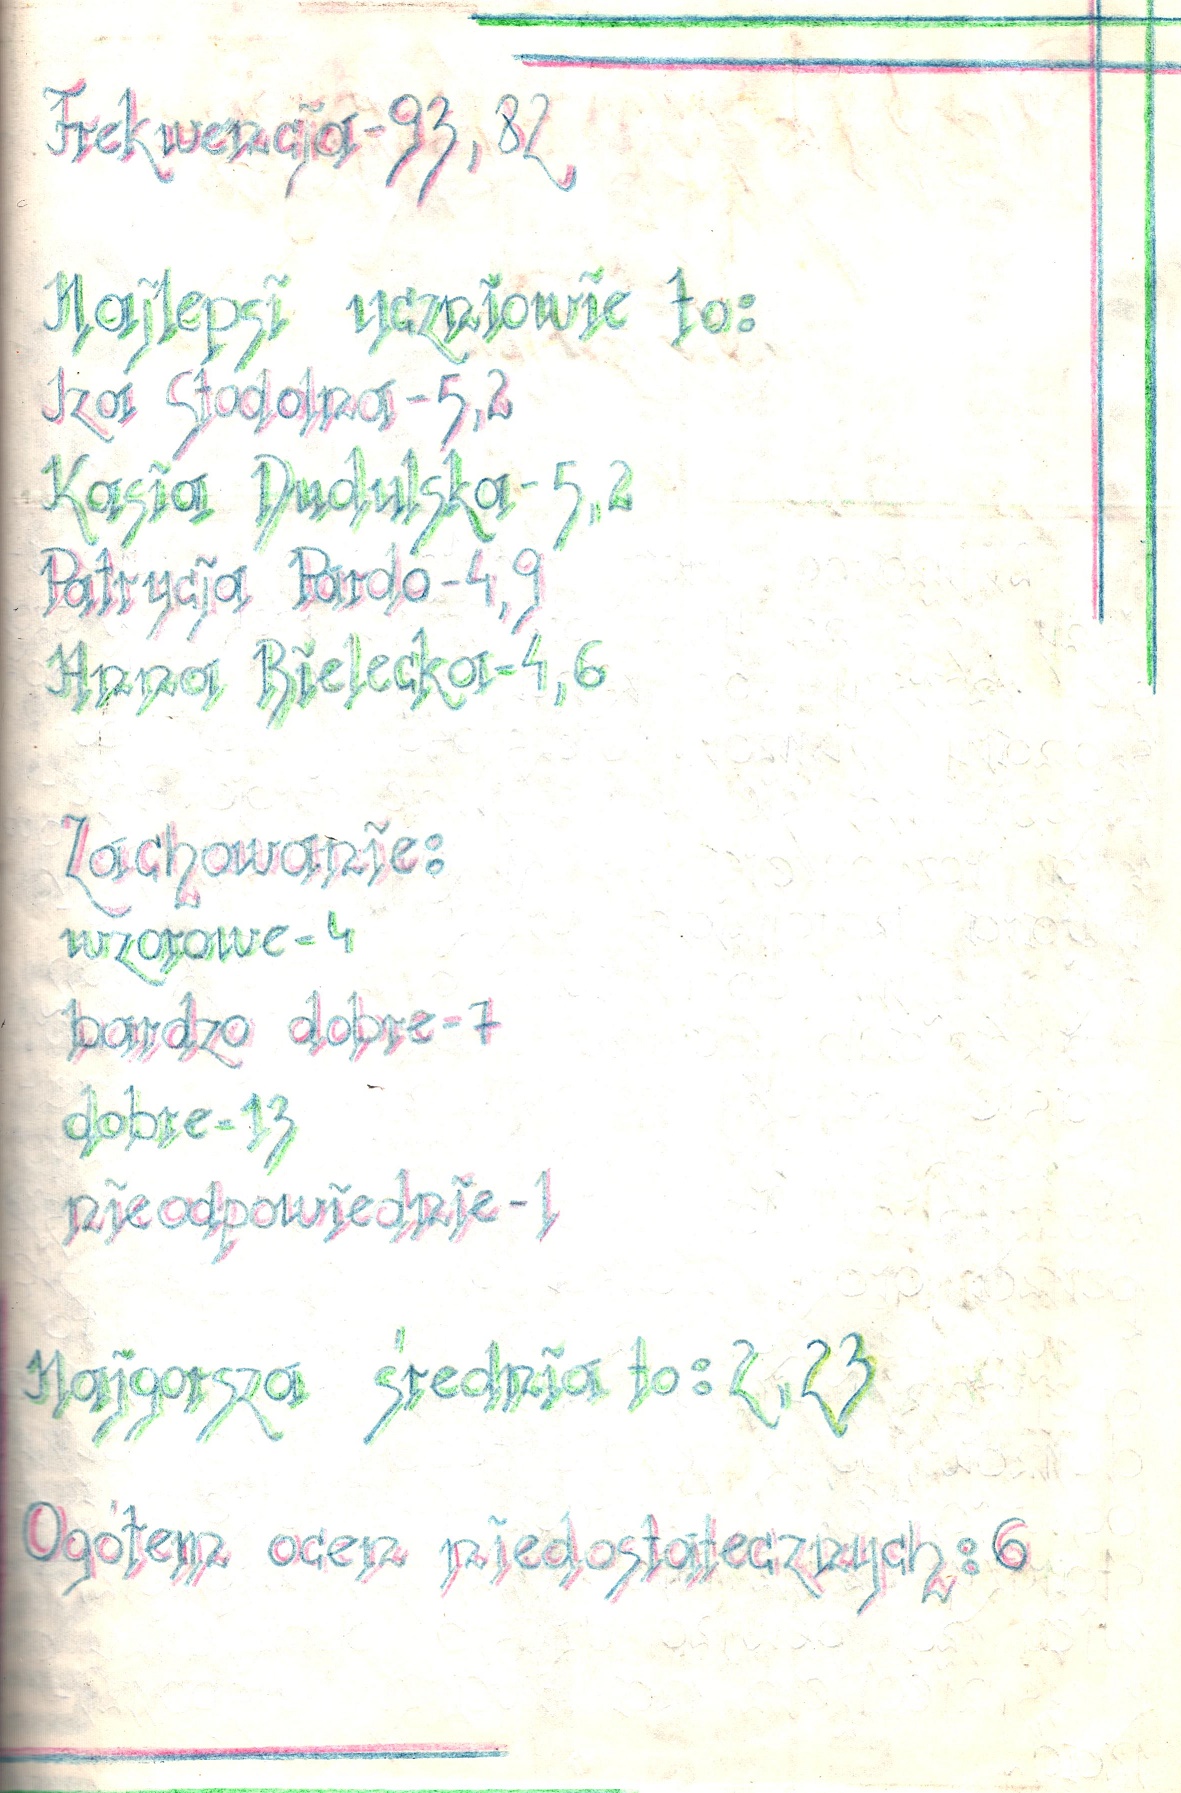 Frekwencja-93,82
Najlepsi uczniowie to:
Iza Stodolna-5,2
Kasia Dudulska-5,2
Patrycja Pardo-4,9
Anna Bielecka-4,6
Zachowanie:
wzorowe-4
bardzo dobre-7
dobre-13
nieodpowiednie-1
Najgorsza średnia to: 2,23
Ogółem ocen niedostatecznych: 6